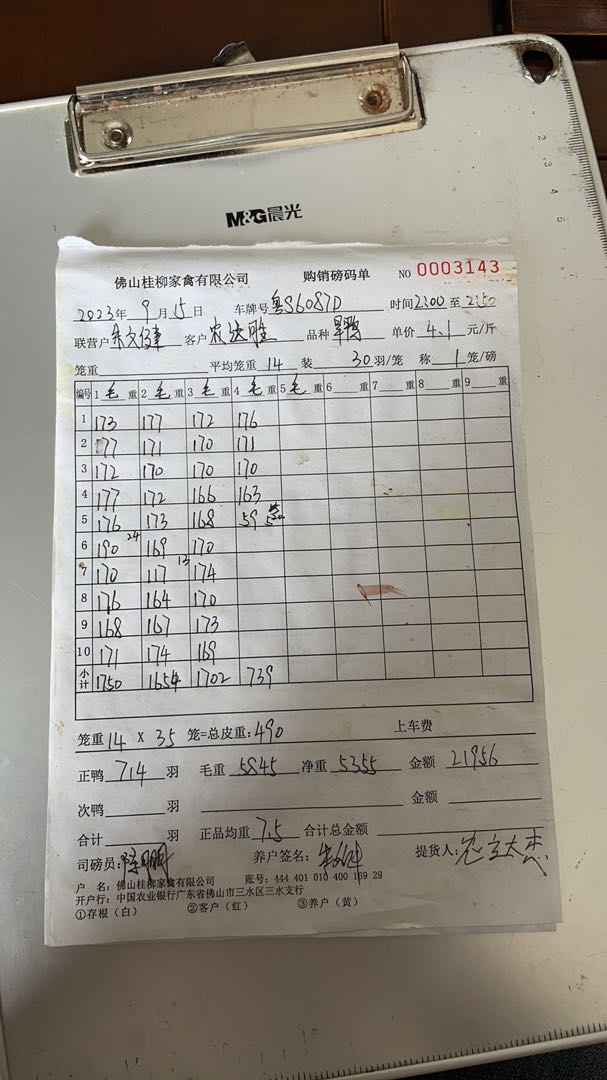 M&G晨光
佛山桂柳家禽有限公司 购销磅码单 NO 0003143
2023年 9月 15日 车牌号 粤S6087D 时间 2200 至 2350
联营户 客户 农达胜 品种 旱鸭 单价 4.1 元/斤
笼重 平均笼重 14 装 30 羽/笼 称 1 笼/磅
编号 1 毛 重 2 毛 重 3 毛 重 4 毛 重 5 毛 重 6 重 7 重 8 重 9 重
1 173 177 172 176
2 177 171 170 171
3 172 170 170 170
4 177 172 166 163
5 176 173 168 59
6 190 24 169 170
7 170 117 13 174
8 176 164 170
9 168 167 173
10 171 174 169
小计 1750 1654 1702 739
笼重 14 X 35 笼=总皮重: 490 上车费
正鸭 714 羽 毛重 5845 净重 5355 金额 21956
次鸭 羽 金额
合计 羽 正品均重 7.5 合计总金额
司磅员: 养户签名: 提货人:
户 名: 佛山桂柳家禽有限公司 账号: 444 401 010 400 169 29
开户行: 中国农业银行广东省佛山市三水区三水支行
①存根（白） ②客户（红） ③养户（黄）